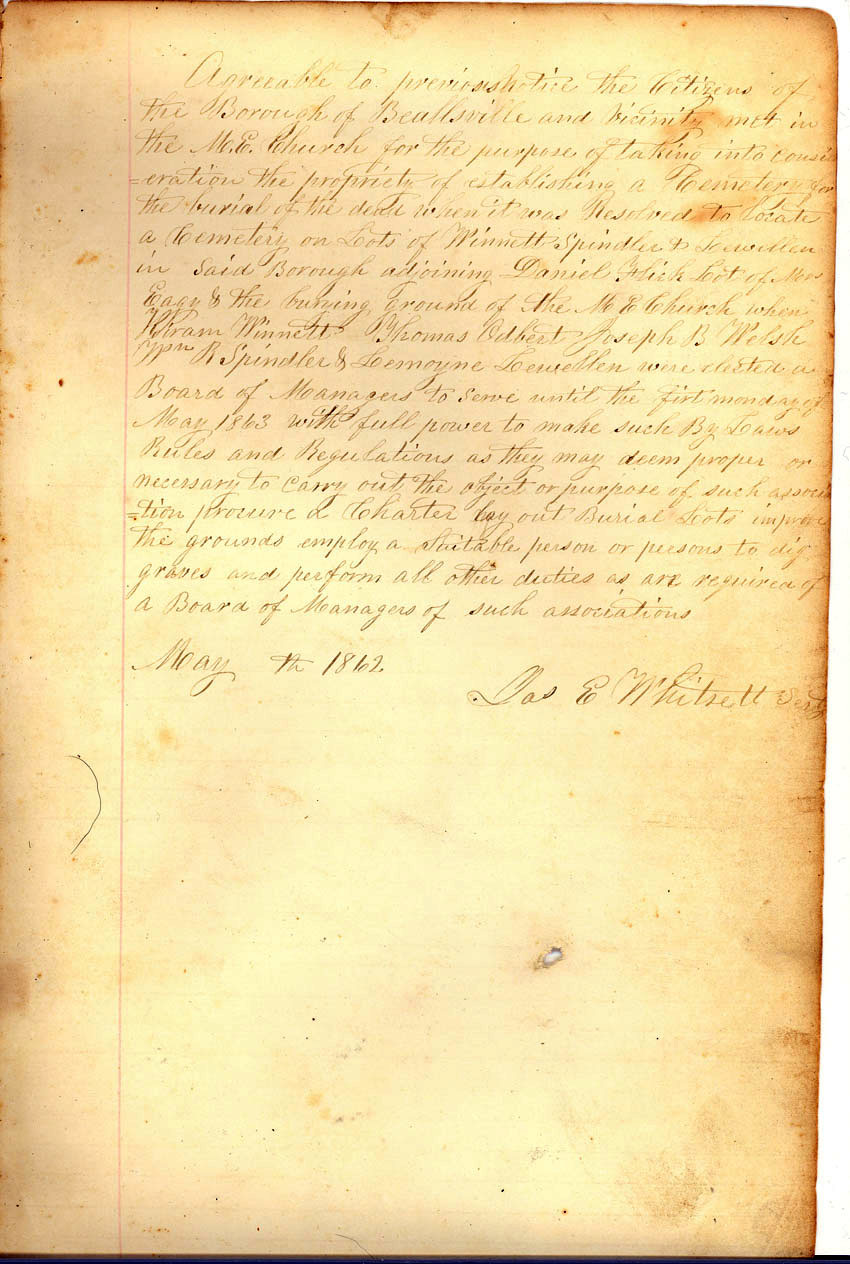 Agreeable to previous notice the Citizens of
the Borough of Beallsville and vicinity met in
the M.E. Church for the purpose of taking into consid
=eration the propriety of establishing a Cemetery for
the burial of the dead when it was Resolved to locate
a Cemetery on Lots of Winnett Spindler & Lewellen
in Said Borough adjoining Daniel Flick Lot of Mrs
Eagy & the burying ground of the M E Church when
Hiram Winnett Thomas Odbert Joseph B Welsh
Wm R Spindler & Lemoyne Lewellen were elected a
Board of Managers to serve until the firt monday of
May 1863 with full power to make such By Laws
Rules and Regulations as they may deem proper or
necessary to carry out the object or purpose of such associa
=tion procure a Charter lay out Burial Lots improve
the grounds employ a Suitable person or persons to dig
graves and perform all other duties as are required of
a Board of Managers of such associations
May th 1862
Jas E Whitsett Secty